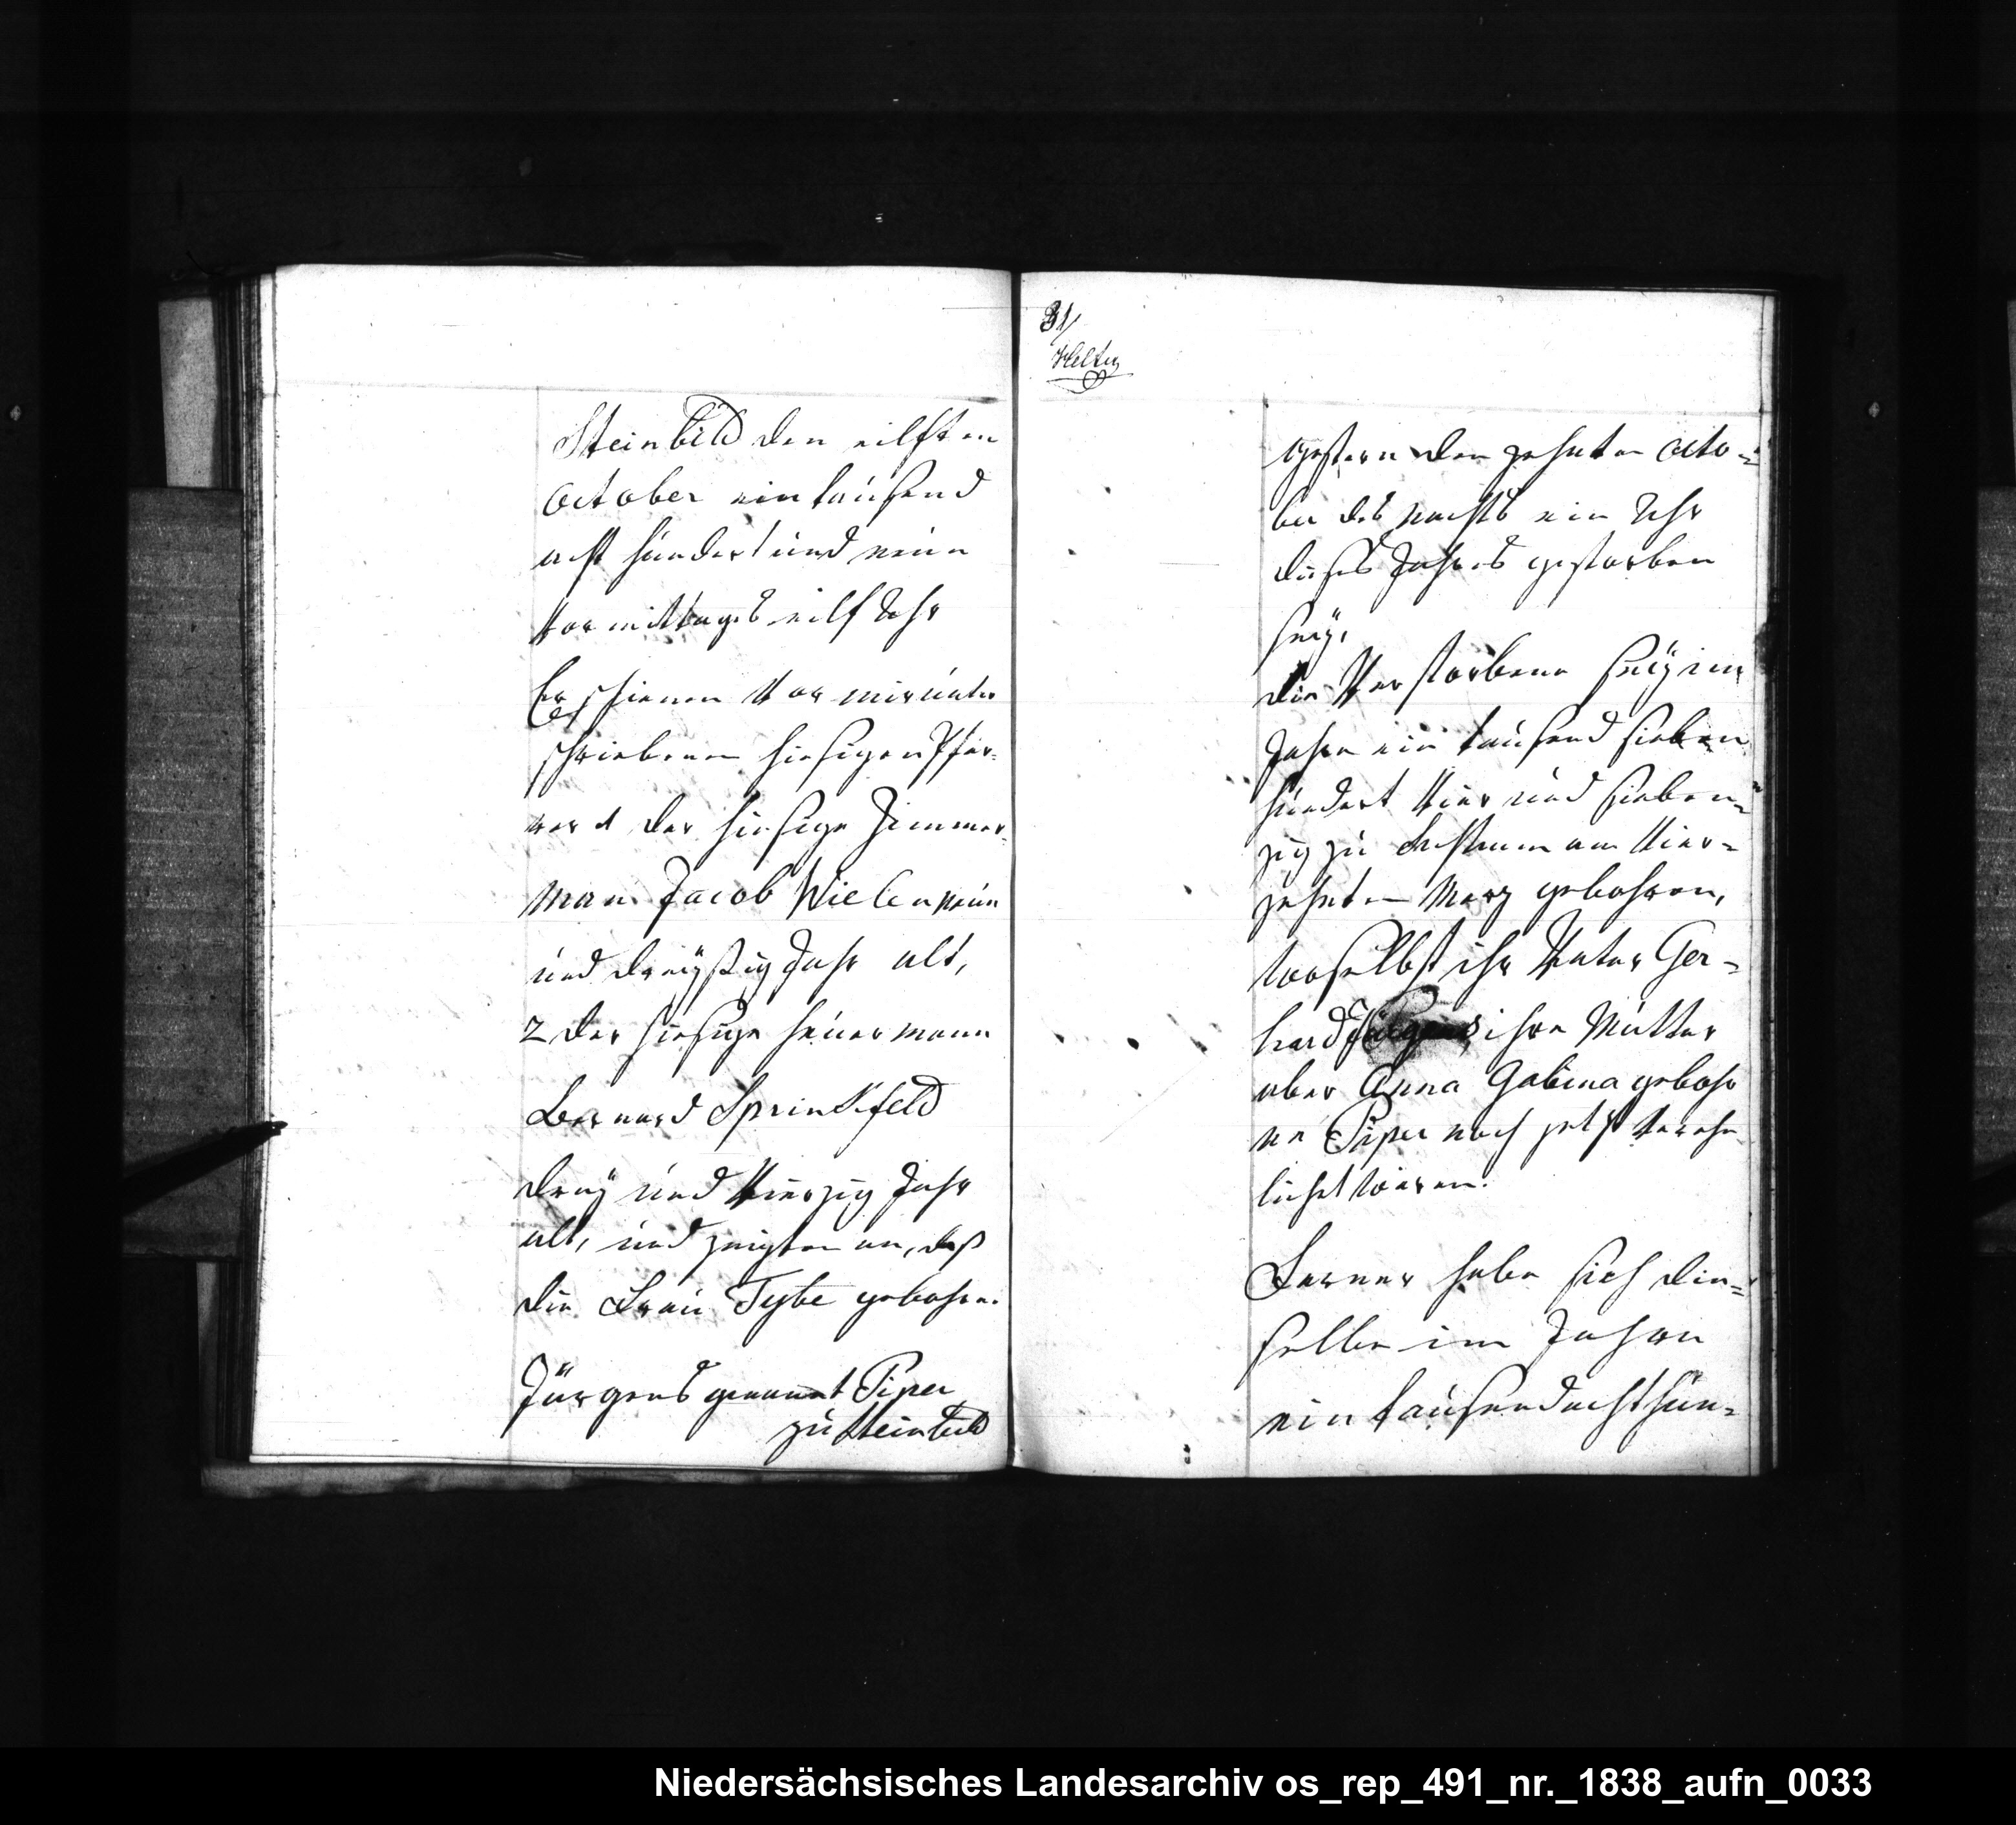 Steinbild den eilften
October ein tausend
acht hundert und neun
Vormittags eilf Uhr
Erschienen vor mir unter
schriebenen hiesigen Pfar-
rer 1 der hiesige Zimmer-
man Jacob Wielen neun
und dreyßig Jahr alt,
2 der hiesige heuermann
Bernard Sprinkfeld
drey und Vierzig Jahr
alt, und zeigten an, daß
die Frau Tybe gebohren
Jürgens genannt Piper
zu Steinbild
31/
gestern den zehnten Octo=
ber des nachts ein Uhr
dieses Jahres gestorben
sey.
die Verstorbene sey im
Jahre ein tausend sieben
hundert Vier und sieben=
zig zu am Vier=
zehnten Merz gebohren,
woselbst ihr Vater Ger=
hard Jürgens ihre Mutter
aber Anna Gabina gebohr
ne Piper noch jetzt Vereh
licht wären.
Ferner habe sich die=
selbe im Jahre
ein tausend acht hun=
Niedersächsisches Landesarchiv os_rep_491_nr._1838_aufn_0033